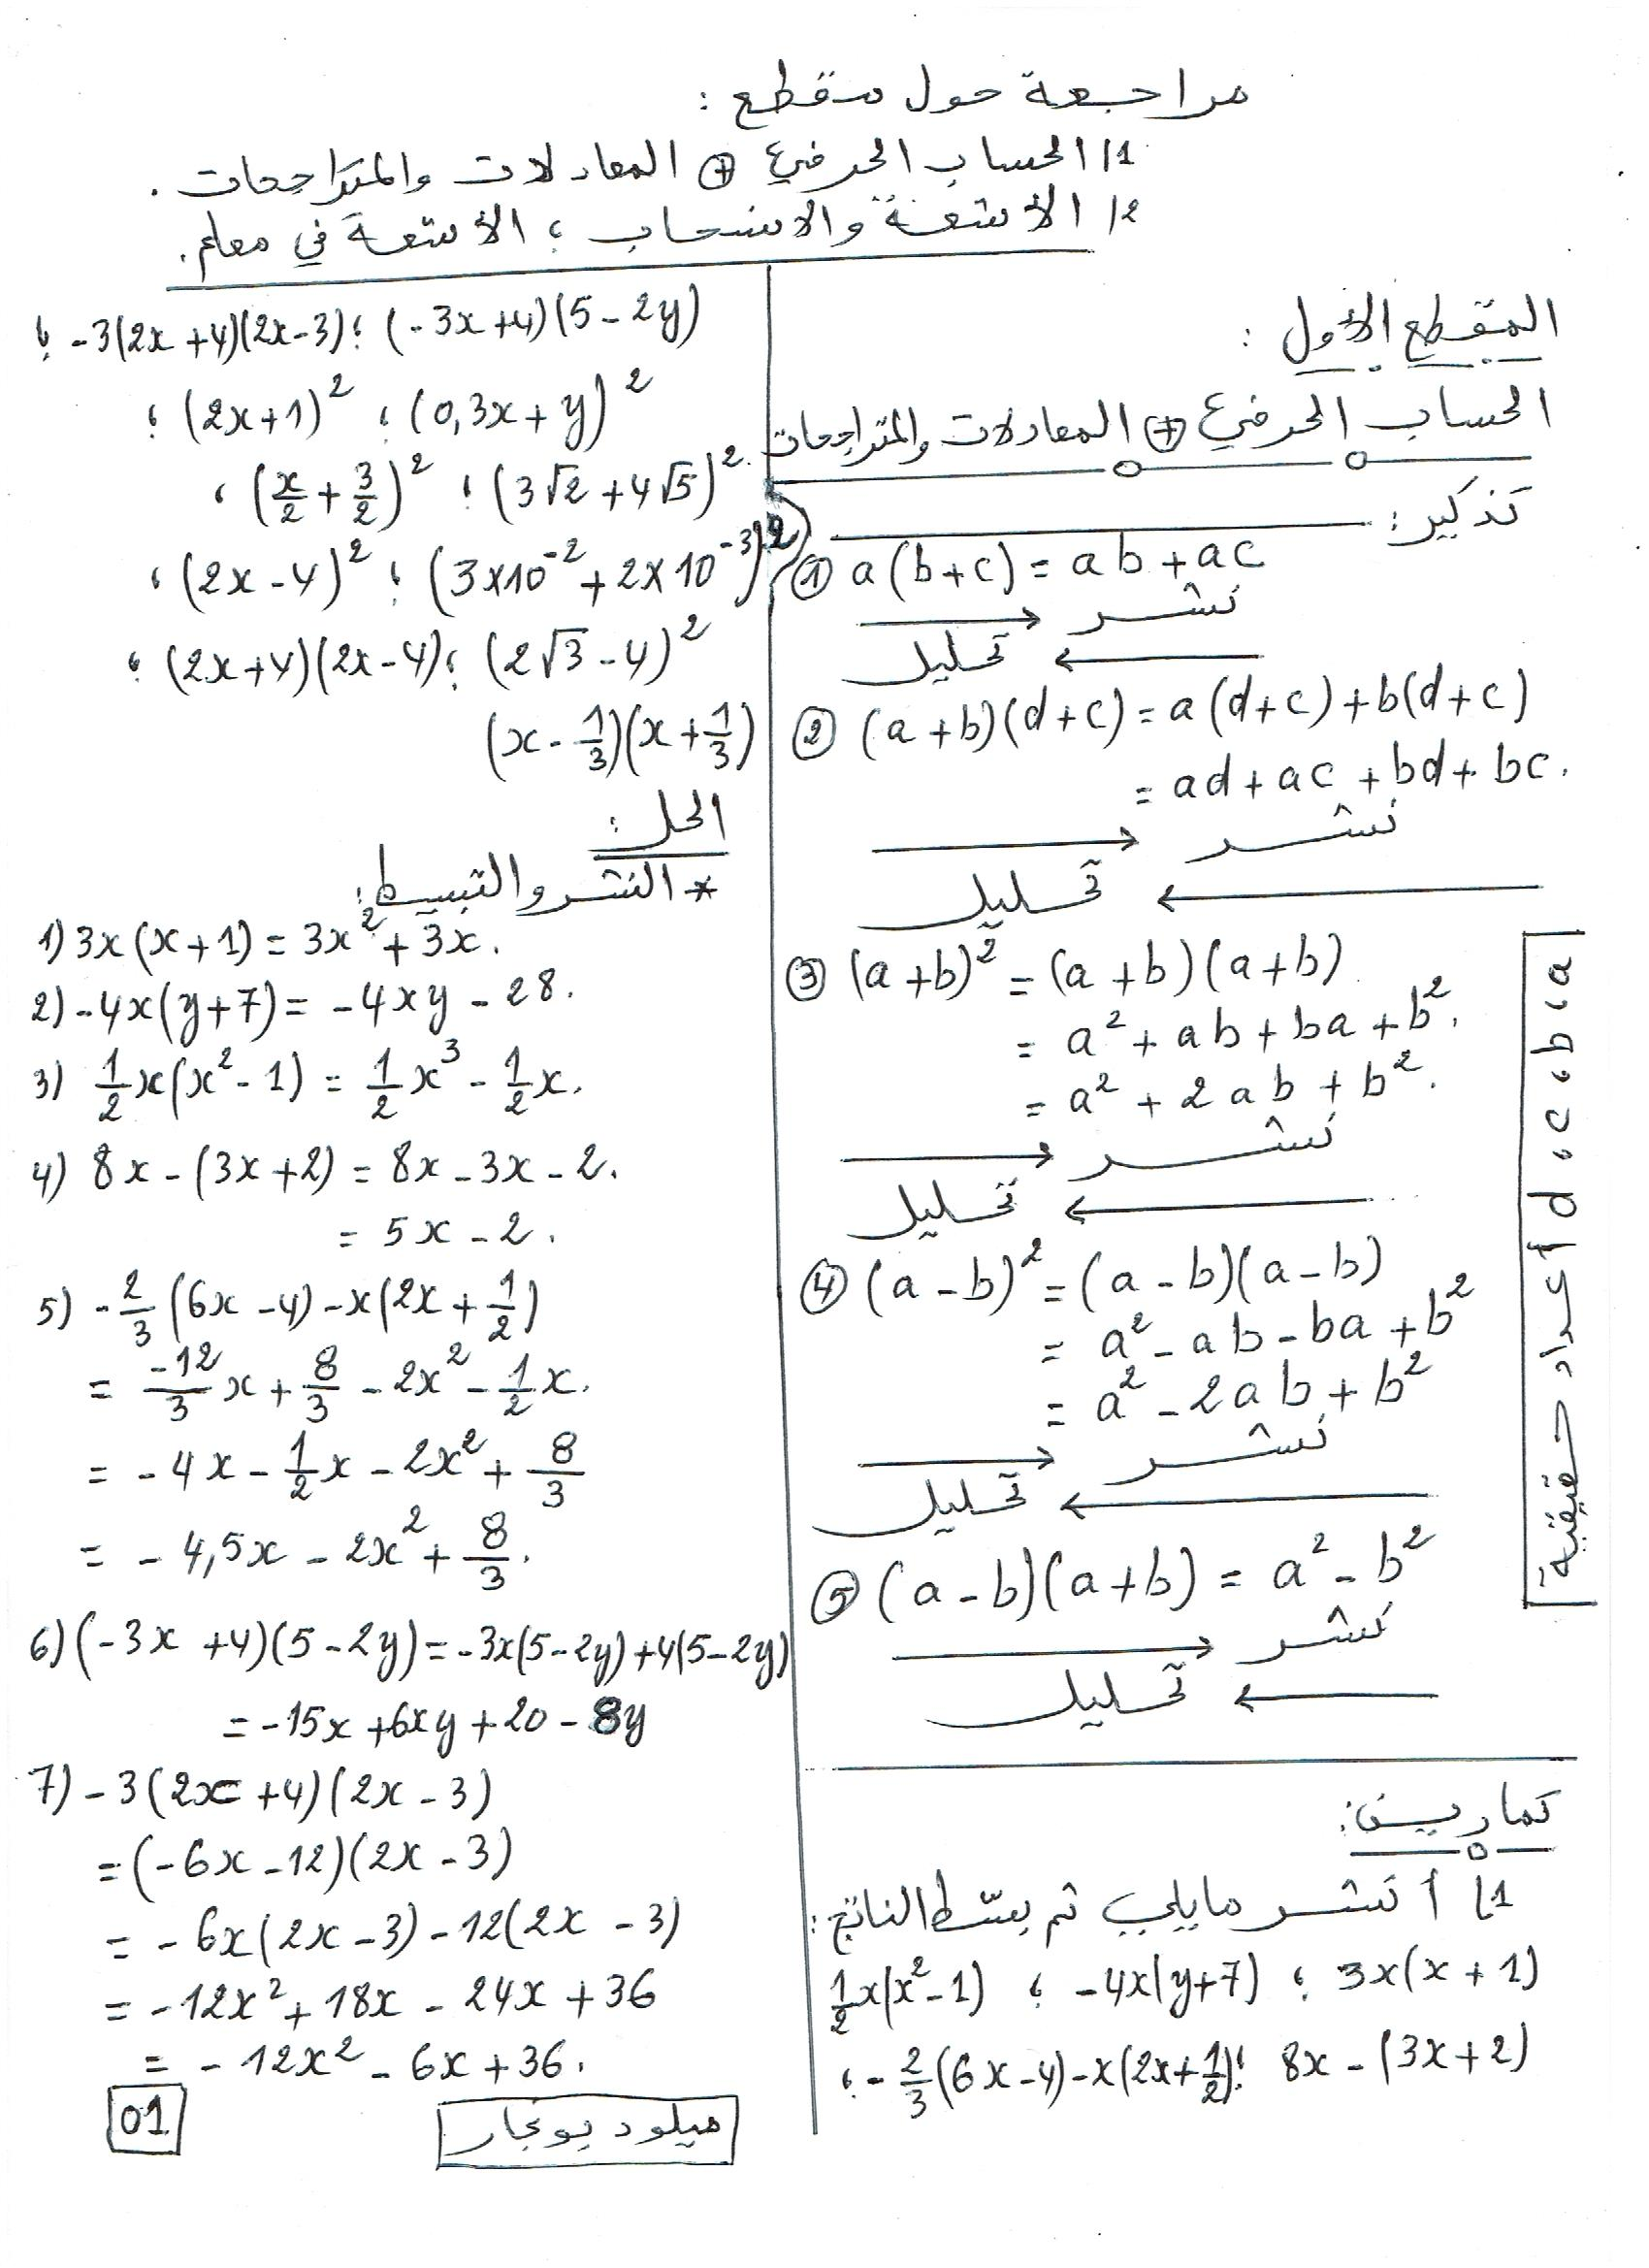 مراجعة حول مقطع :
1/ الحساب الحرفي ⊕ المعادلات والمتراجحات .
2/ الأشعة والانسحاب ؛ الأشعة في معلم .
المقطع الأول :
الحساب الحرفي ⊕ المعادلات والمتراجحات .
تذكير :
① a(b+c) = ab+ac
نشر →
← تحليل
② (a+b)(d+c) = a(d+c)+b(d+c)
= ad+ac+bd+bc.
نشر →
← تحليل
③ (a+b)² = (a+b)(a+b)
= a²+ab+ba+b².
= a²+2ab+b².
نشر →
← تحليل
④ (a-b)² = (a-b)(a-b)
= a²-ab-ba+b²
= a²-2ab+b²
نشر →
← تحليل
⑤ (a-b)(a+b) = a²-b²
نشر →
← تحليل
a ، b ، c ، d أعداد حقيقية
تمارين :
1/ أنشر مايلي ثم بسّط الناتج :
3x(x+1) ؛ -4x(y+7) ؛ 1/2x(x²-1)
8x-(3x+2) ؛ -2/3(6x-4)-x(2x+1/2) ؛
(-3x+4)(5-2y) ؛ -3(2x+4)(2x-3) ؛
(0,3x+y)² ؛ (2x+1)² ؛
(3√2+4√5)² ؛ (x/2+3/2)² ؛
(3×10⁻²+2×10⁻³)² ؛ (2x-4)² ؛
(2√3-4)² ؛ (2x+4)(2x-4) ؛
(x-1/3)(x+1/3)
الحل :
* النشر والتبسيط :
1) 3x(x+1) = 3x²+3x.
2) -4x(y+7) = -4xy-28.
3) 1/2x(x²-1) = 1/2x³-1/2x.
4) 8x-(3x+2) = 8x-3x-2.
= 5x-2.
5) -2/3(6x-4)-x(2x+1/2)
= -12/3x+8/3-2x²-1/2x.
= -4x-1/2x-2x²+8/3
= -4,5x-2x²+8/3.
6) (-3x+4)(5-2y) = -3x(5-2y)+4(5-2y)
= -15x+6xy+20-8y
7) -3(2x+4)(2x-3)
= (-6x-12)(2x-3)
= -6x(2x-3)-12(2x-3)
= -12x²+18x-24x+36
= -12x²-6x+36.
01
ميلود بونجار